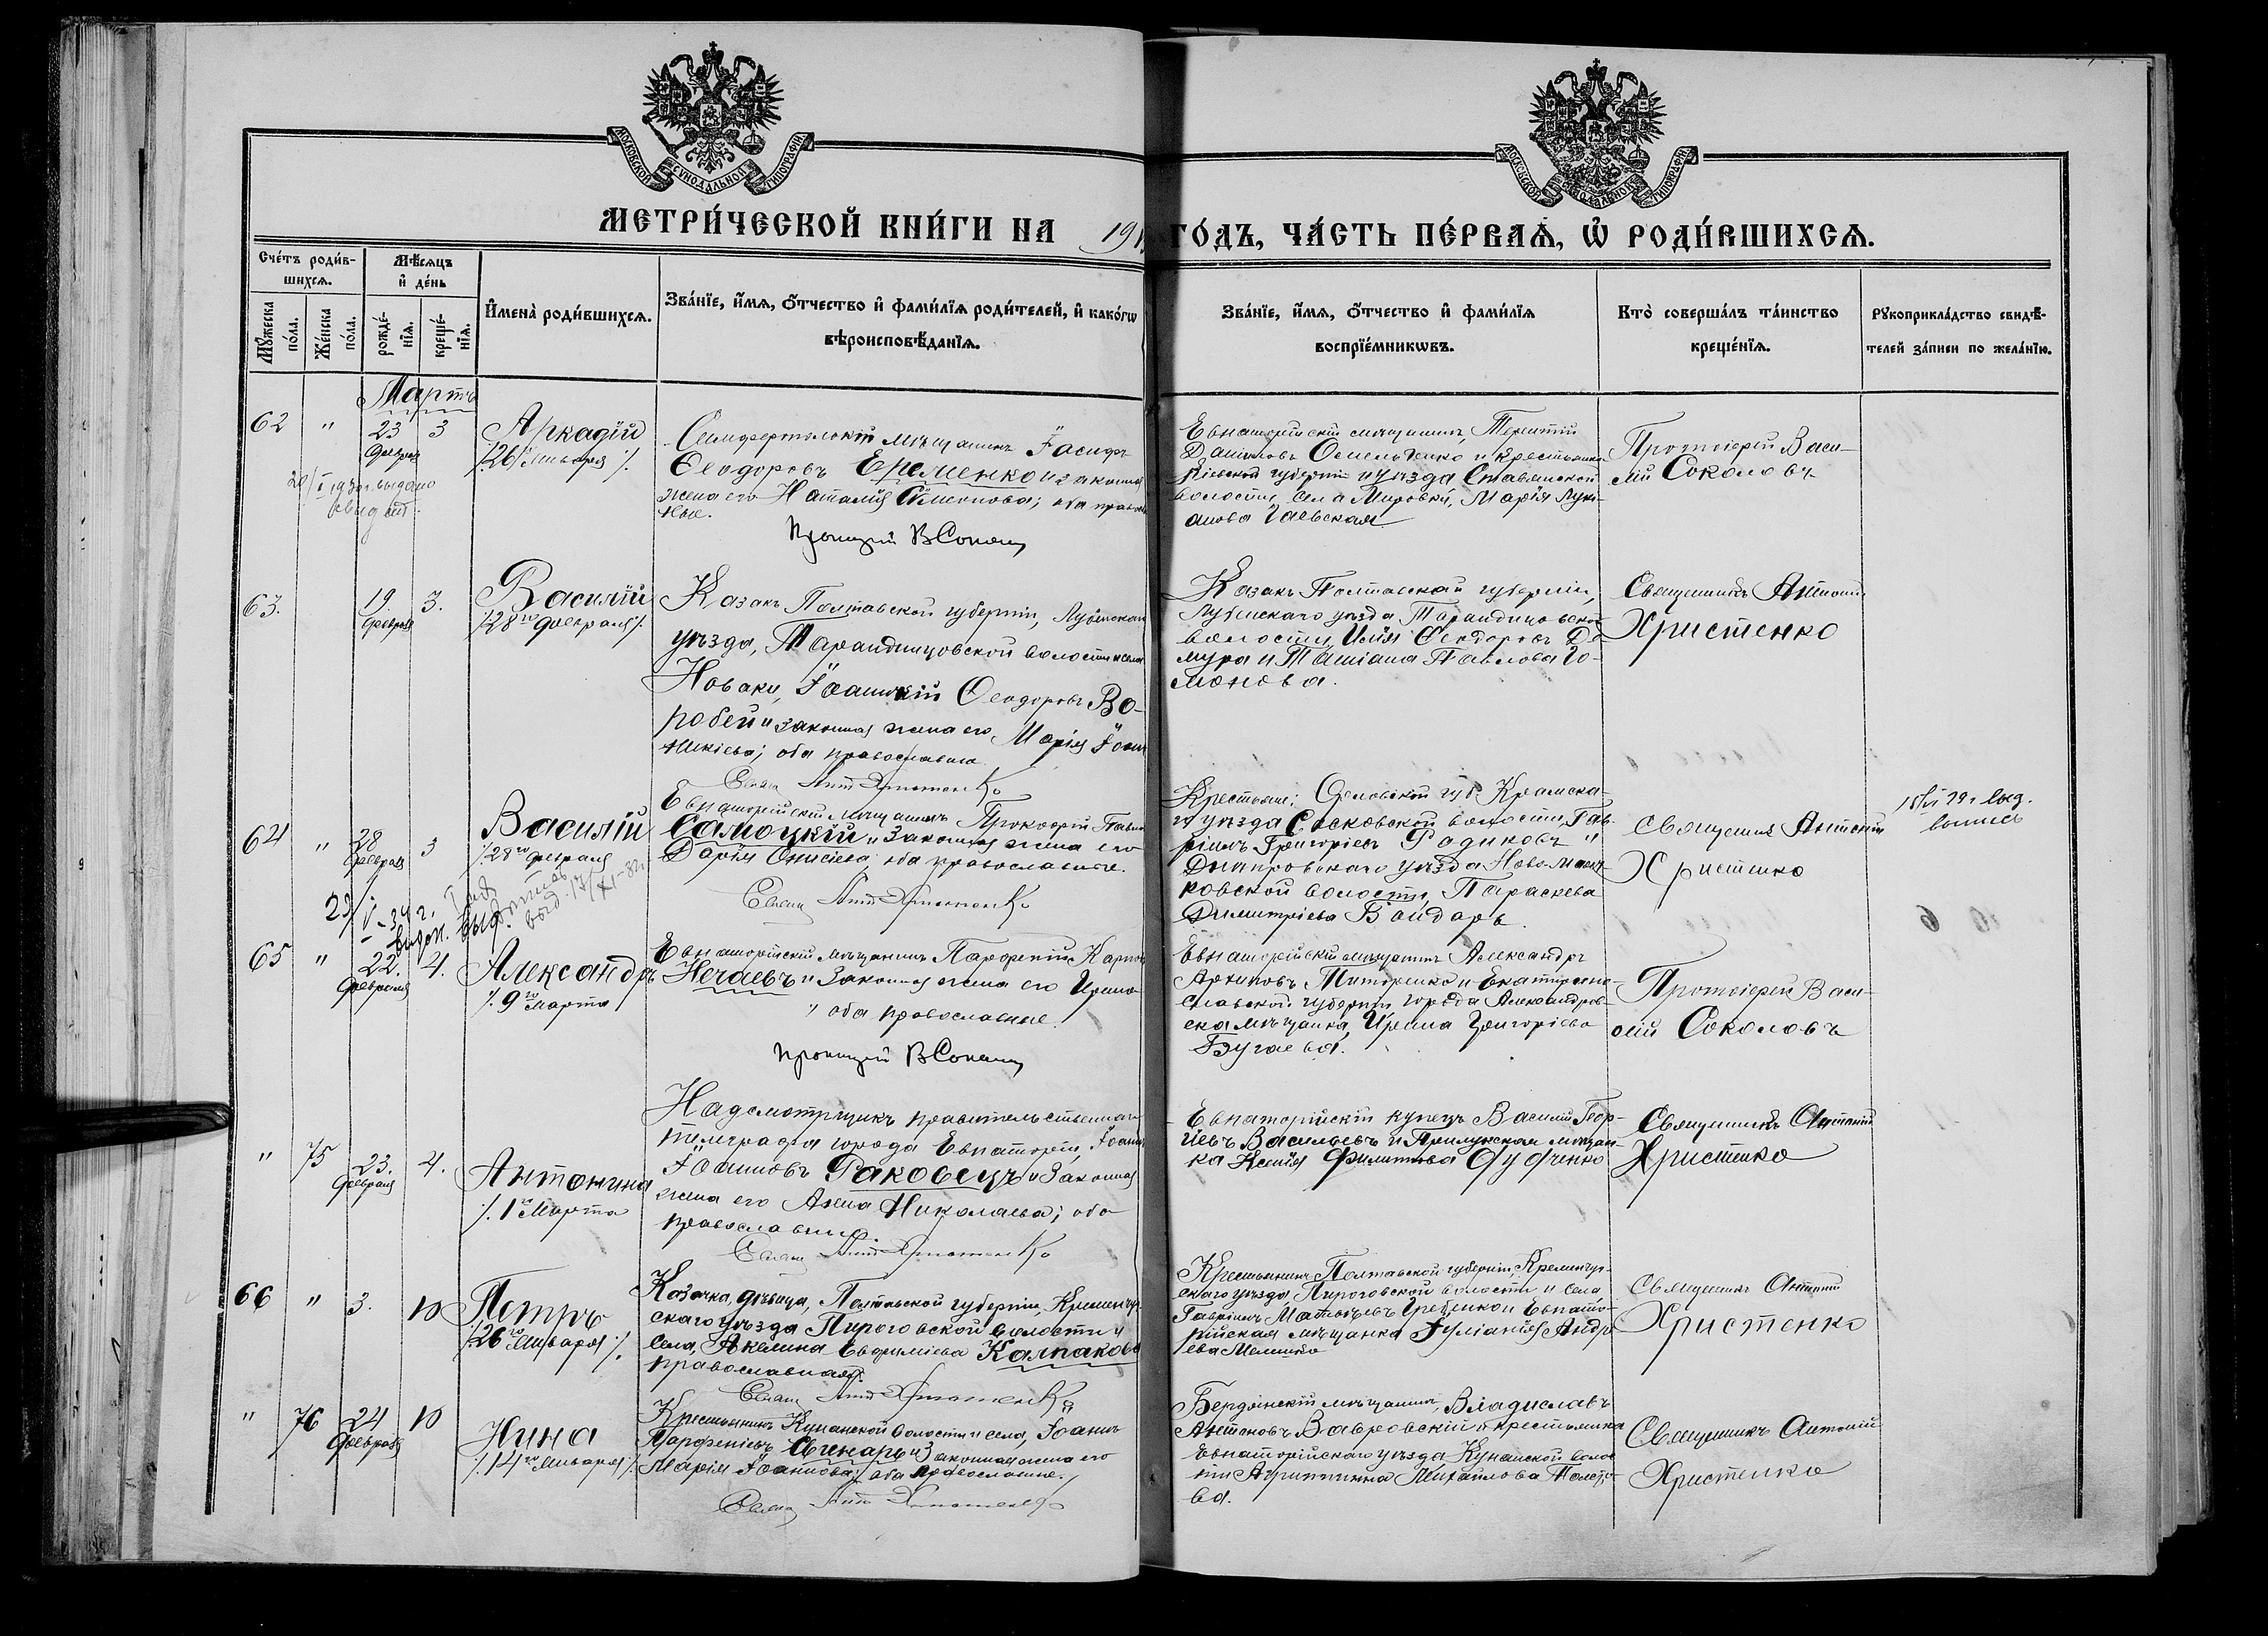 МОСКОВСКОЙ СѴНОДАЛЬНОЙ ТИПОГРАФІИ
МОСКОВСКОЙ СѴНОДАЛЬНОЙ ТИПОГРАФІИ
МЕТРИ́ЧЕСКОЙ КНИ́ГИ НА 191
ГО́ДЪ, ЧА́СТЬ ПЕ́РВАѦ, Ѡ҆ РОДИ́ВШИХСѦ.
Сче́тъ роди́в-
шихсѧ.
Мꙋ́жеска по́ла.
Же́нска по́ла.
Мѣ́сѧцъ
и҆ де́нь
рожде́-
нїѧ.
креще́-
нїѧ.
И҆мена̀ роди́вшихсѧ.
Зва́нїе, и҆́мѧ, ѻ҆́тчество и҆ фами́лїѧ роди́телей, и҆ како́гѡ
вѣроисповѣ́данїѧ.
Зва́нїе, и҆́мѧ, ѻ҆́тчество и҆ фами́лїѧ
воспрїе́мникѡвъ.
Кто̀ соверша́лъ та́инство
креще́нїѧ.
Рꙋкоприкла́дство свидѣ́-
телей за́писи по жела́нїю.
Мартъ
62 " 23 3
Февраля
Аркадій
/26 Января/
Симферопольскій мѣщанинъ Іосифъ
Ѳеодоровъ Еременко и законная
жена его Наталія Симеонова; оба православ-
ные.
Протоіерей В Соколовъ
Евпаторійскій мѣщанинъ, Терентій
Даніиловъ Омельченко и крестьянка
Кіевской губерніи и уѣзда Ставянской
волости, села Мировки, Марія Луки-
анова Гаевская
Протоіерей Васи-
лій Соколовъ
63. 19 3.
Февраля
Василій
/28го Февраля/
Казакъ Полтавской губерніи, Лубенскаго
уѣзда, Тарандинцовской волости и села
Новаки, Іоанникій Ѳеодоровъ Во-
робей и законная жена его, Марія Іоан-
никіева; оба православные
Свящ Ант Христенко
Казакъ Полтавской губерніи,
Лубенскаго уѣзда Тарандинцовской
волости, Илія Ѳеодоровъ До-
мура и Татіана Павлова Го-
монова.
Священникъ Антоній
Христенко
64 " 28 3
Февраля
Василій
/28го Февраля
Евпаторійскій мѣщанинъ Прокопій Павловъ
Самоцкій и законная жена его
Дарія Онисіева оба православные.
Свящ Ант Христенко
Крестьяне: Орловской губ. Кромска-
го уѣзда Сосковской волости, Гав-
ріилъ Григоріевъ Родиковъ и
Днѣпровскаго уѣзда Ново-Маяч-
ковской волости, Параскева
Димитріева Вондарь.
Священникъ Антоній
Христенко
65 " 22. 4.
Февраля
Александръ
/. 9го Марта
Евпаторійскій мѣщанинъ Парфеній Карповъ
Нечаевъ и законная жена его Ирина
" оба православные.
Протоіерей В Соколовъ
Евпаторійскій мѣщанинъ Александръ
Архиповъ Титоренко и Екатерино-
славской губерніи города Александров-
ска мѣщанка, Ирина Григоріева
Бугаева.
Протоіерей Васи-
лій Соколовъ
" 75 23. 4.
Февраля
Антонина
/. 1го Марта
Надсмотрщикъ правительственнаго
телеграфа города Евпаторіи, Іоаннъ
Іоанновъ Раковецъ и законная
жена его Анна Николаева; оба
православные.
Свящ Ант Христенко
Евпаторійскій купецъ Василій Геор-
гіевъ Васильевъ и Прилукская мѣщан-
ка Ксенія Филиппова Дудченко
Священникъ Антоній
Христенко
66 " 3. 10
Петръ
/26го Января/
Козачка, дѣвица, Полтавской губерніи, Кременчуг-
скаго уѣзда Пироговской волости и
села, Акелина Евфиміева Калпакова
православная.
Свящ Ант Христенко
Крестьянинъ Полтавской губерніи, Кременчуг-
скаго уѣзда Пироговской волости и села
Гавріилъ Матвѣевъ Гребенко и Евпато-
рійская мѣщанка Іуліанія Андре-
ева
Священникъ Антоній
Христенко
" 76 24 10
Февраля
Нина
/14го Января/
Крестьянинъ Кунанской волости и села, Іоаннъ
Парфеніевъ Свинарь и законная жена его
Марія Іоаннова; оба православные.
Свящ Ант Христенко
Бердянскій мѣщанинъ, Владиславъ
Антоновъ Вавровскій и крестьянка
Евпаторійскаго уѣзда Кунанской волос-
ти Агриппина Михайлова
ва.
Священникъ Антоній
Христенко